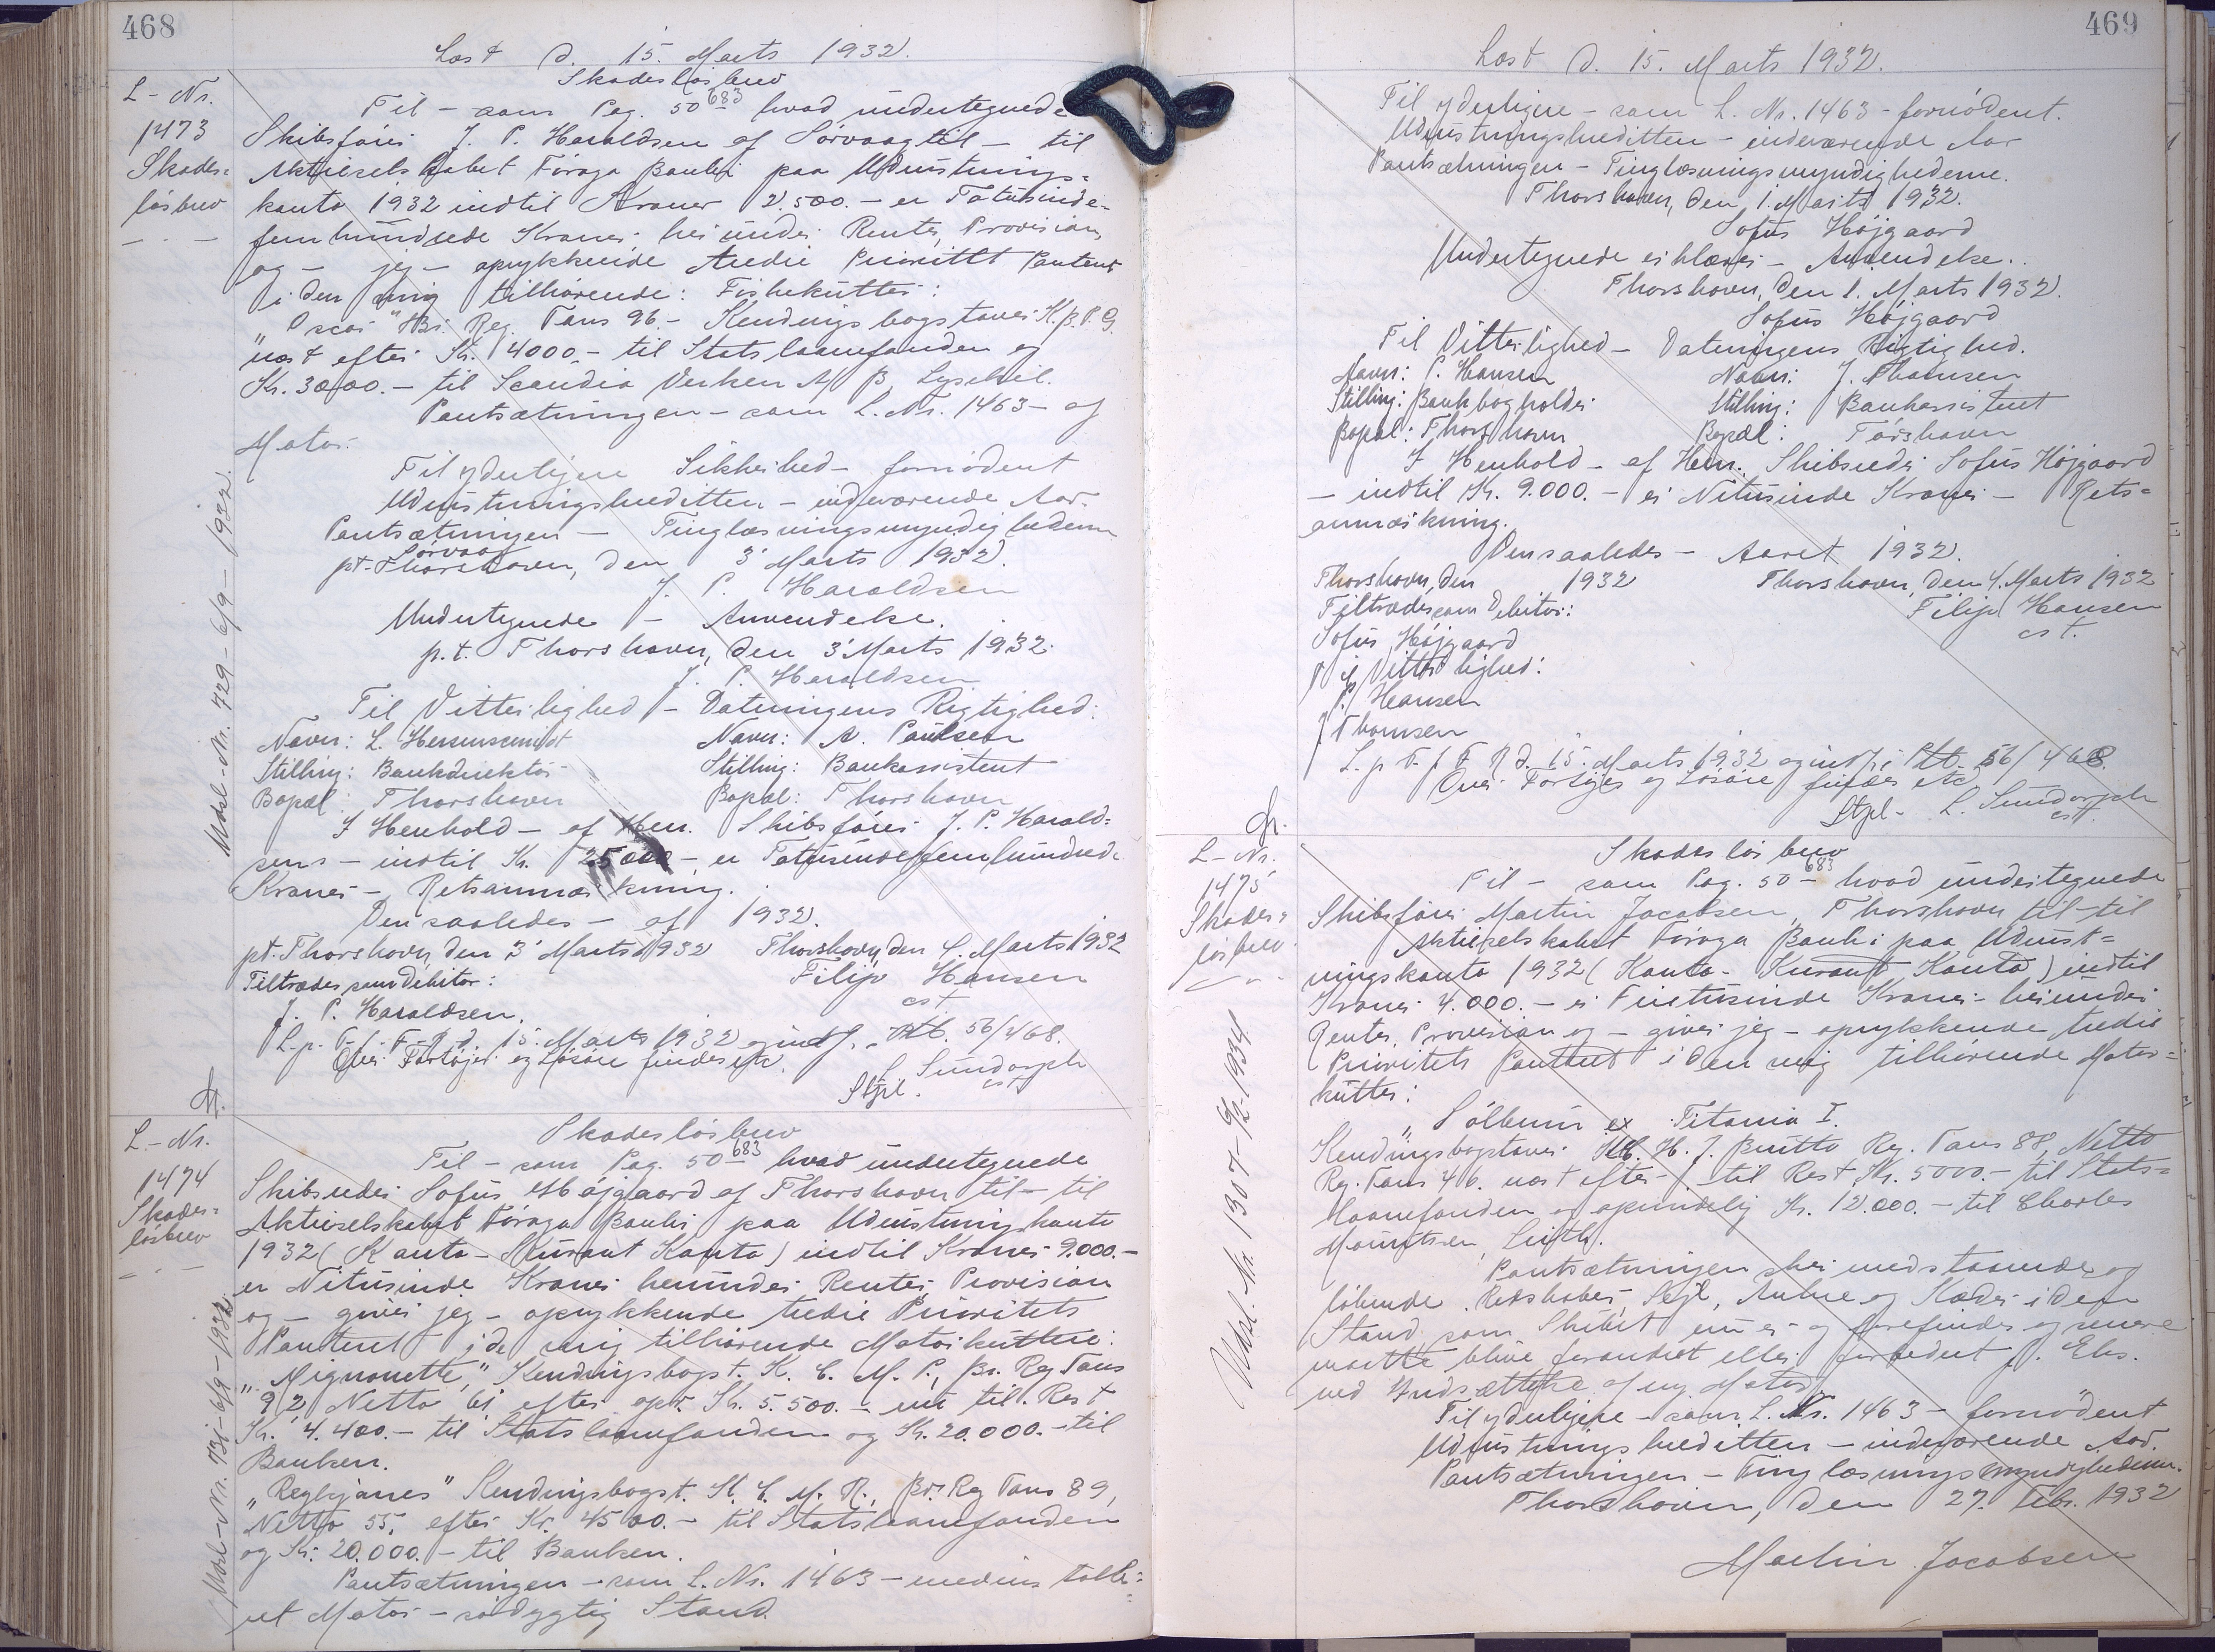 468
Læst d. 15. Marts 1932.
L-Nr.
1473
Skades-
løsbrev
Skadesløsbrev
Til - som Pag. 50 683 hvad undertegnede
Skibsfører J. P. Haraldsen af Sörvaag til - til
Aktieselskabet Föroya Banki paa Udrustnings-
konto 1932 indtil Kroner 2.500.- er Totusinde-
femhundrede Kroner, herunder Renter, Provision,
og - jeg - oprykkende tredie Prioritet Panteret
i den mig tilhørende: Fiskekutter:
"Oscar" Br. Reg. Tons 96.- Kendingsbogstaver
næst efter Kr. 4000.- til Statslaanefonden og
Kr. 3000.- til Scandia Verken A/B, Lysekil.
Pantsætningen - som L. Nr. 1463 - og
Motor.
Til yderligere Sikkerhed - fornødent
Udrustningskreditten - indeværende Aar.
Pantsætningen - Tinglæsningsmyndighederne
Sörvaag
pt. Thorshavn, den 3' Marts 1932.
J. P. Haraldsen
Undertegnede - Anvendelse.
p.t. Thorshavn, den 3' Marts 1932.
J. P. Haraldsen
Til Vitterlighed - Dateringens Rigtighed:
Navn: L. Navn: A. Paulsen
Stilling: Bankdirektör Stilling: Bankassistent
Bopæl: Thorshavn Bopæl: Thorshavn
I Henhold - af Herr. Skibsfører J. P. Harald-
sens - indtil Kr. 2500 - er Totusindefemhundrede
Kroner - Retsanmærkning.
Den saaledes - af 1932.
pt. Thorshavn, den 3' Marts 1932 Thorshavn, den 4. Marts 1932
Tiltrædes som Debitor: Filip Hansen
cst.
J. P. Haraldsen.
L. p. T. f. F. R. d. 15. Marts 1932 og indf. i Ptb. 56/468.
Over Fartøjer og Løsøre findes etc.
L. Sundorph
Stpl. cst
Udsl.-Nr. 729 - 6/9 - 1932.
L-Nr.
1474
Skades-
løsbrev
Skadesløsbrev
Til - som Pag. 50 683 hvad undertegnede
Skibsreder Sofus Højgaard af Thorshavn til - til
Aktieselskabet Föroya Banki paa Udrustningskonto
1932 (Konto-Kurant Konto) indtil Kroner 9.000.-
er Nitusinde Kroner herunder Renter, Provision
og - giver jeg - oprykkende tredie Prioritets
Panteret i de mig tilhørende Motorkuttere:
"Mignonette," Kendingsbogst. N. C. M. P., Br. Reg Tons
92, Netto 61 efter opr. Kr. 5.500.- nu til Rest
Kr. 4.400.- til Statslaanefonden og Kr. 20.000.- til
Banken.
"Reykjanes" Kendingsbogst. N. C. M. R., Br. Reg Tons 89,
Netto 55, efter Kr. 4500.- til Statslaanefonden
og Kr. 20.000.- til Banken.
Pantsætningen - som L. Nr. 1463 -
Motor - södygtig Stand
Udsl-Nr. 731 - 6/9 - 1932.
469
Læst d. 15. Marts 1932.
Til yderligere - som L. Nr. 1463 - fornødent.
Udrustningskreditten - indeværende Aar
Pantsætningen - Tinglæsningsmyndighederne.
Thorshavn, den 1. Marts 1932.
Sofus Højgaard
Undertegnede erklærer - Anvendelse.
Thorshavn, den 1. Marts 1932.
Sofus Højgaard
Til Vitterlighed - Dateringens Rigtighed.
Navn: P. Hansen Navn: J. Thomsen
Stilling: Bankbogholder Stilling: Bankassistent
Bopæl: Thorshavn Bopæl: Tórshavn
I Henhold - af Herr. Skibsreder Sofus Højgaard
- indtil Kr. 9.000.- er Nitusinde Kroner - Rets-
anmærkning.
Den saaledes - Aaret 1932.
Thorshavn, den 1932 Thorshavn, den 4. Marts 1932
Tiltrædes som Debitor: Filip Hansen
cst.
Sofus Højgaard
Til Vitterlighed:
P. Hansen
J Thomsen
L. p. T. f. F. R d. 15. Marts 1932 og indf. i Ptb. 56/468.
Over Fartøjer og Løsøre findes etc
Stpl - L. Sundorph
cst.
L-Nr.
1475
Skades-
løsbrev
Skadesløsbrev
Til - som Pag. 50 - 683 hvad undertegnede
Skibsfører Martin Jacobsen, Thorshavn til - til
Aktieselskabet Föroya Banki paa Udrust-
ningskonto 1932 (Konto-Kurant Konto) indtil
Kroner 4.000.- er Firetusinde Kroner - herunder
Renter, Provision og - giver jeg - oprykkende tredie
Prioritets Panteret i den mig tilhørende Motor-
kutter:
"Sólborn ex Titania I.
Kendingsbogstaver H. J. Brutto Reg. Tons 88, Netto
Reg. Tons 46. næst efter - til Rest Kr. 5000.- til Stats-
laanefonden og oprindelig Kr. 12.000.- til Charles
Mouritsen, Leith.
Pantsætningen sker med staaende og
løbende Redskaber, Sejl, Ankre og Kæder i den
Stand som Skibet nu er og forefindes og senere
maatte blive forandret eller forbedret f. Eks.
ved Indsættelse af ny Motor.
Til yderligere - som L. Nr. 1463 - fornødent
Udrustningskreditten - indeværende Aar.
Pantsætningen - Tinglæsningsmyndighederne.
Thorshavn, den 27. Febr. 1932
Martin Jacobsen
Udsl. Nr. 1307 - 1934